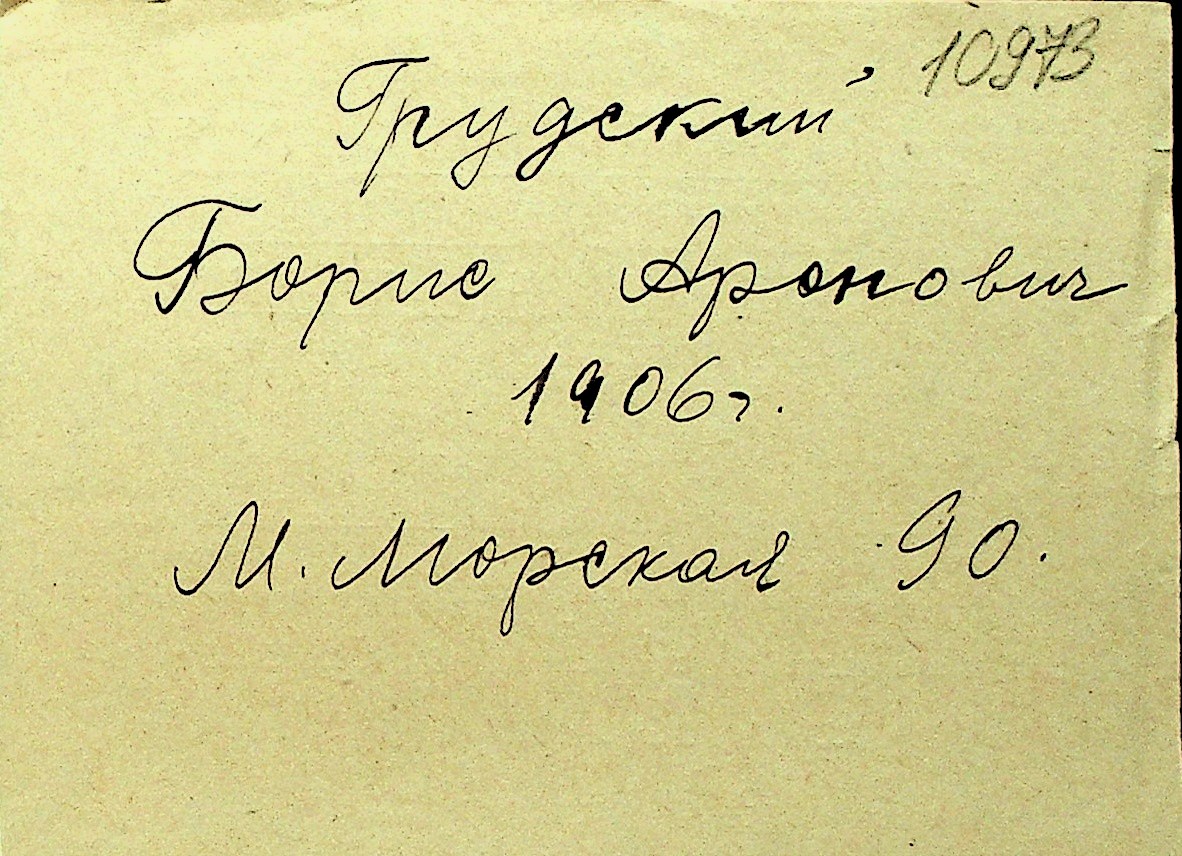 10973
Грудский
Борис Аронович
1906г.
М. Морская 90.